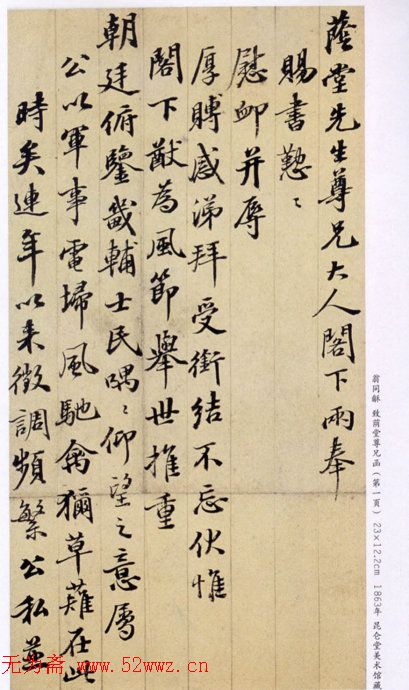 蔭堂先生尊兄大人閣下兩奉
賜書懃〻
慰卹并辱
厚賻感涕拜受銜結不忘伏惟
閣下猷為風節舉世推重
朝廷俯鑒畿輔士民喁〻仰望之意屬
公以軍事電埽風馳禽獮草薙在此
時矣連年以来徵調頻繁公私並
翁同龢 致荫堂尊兄函（第一页） 23×12.2cm 1863年 昆仑堂美术馆藏
无为斋 www.52wwz.cn